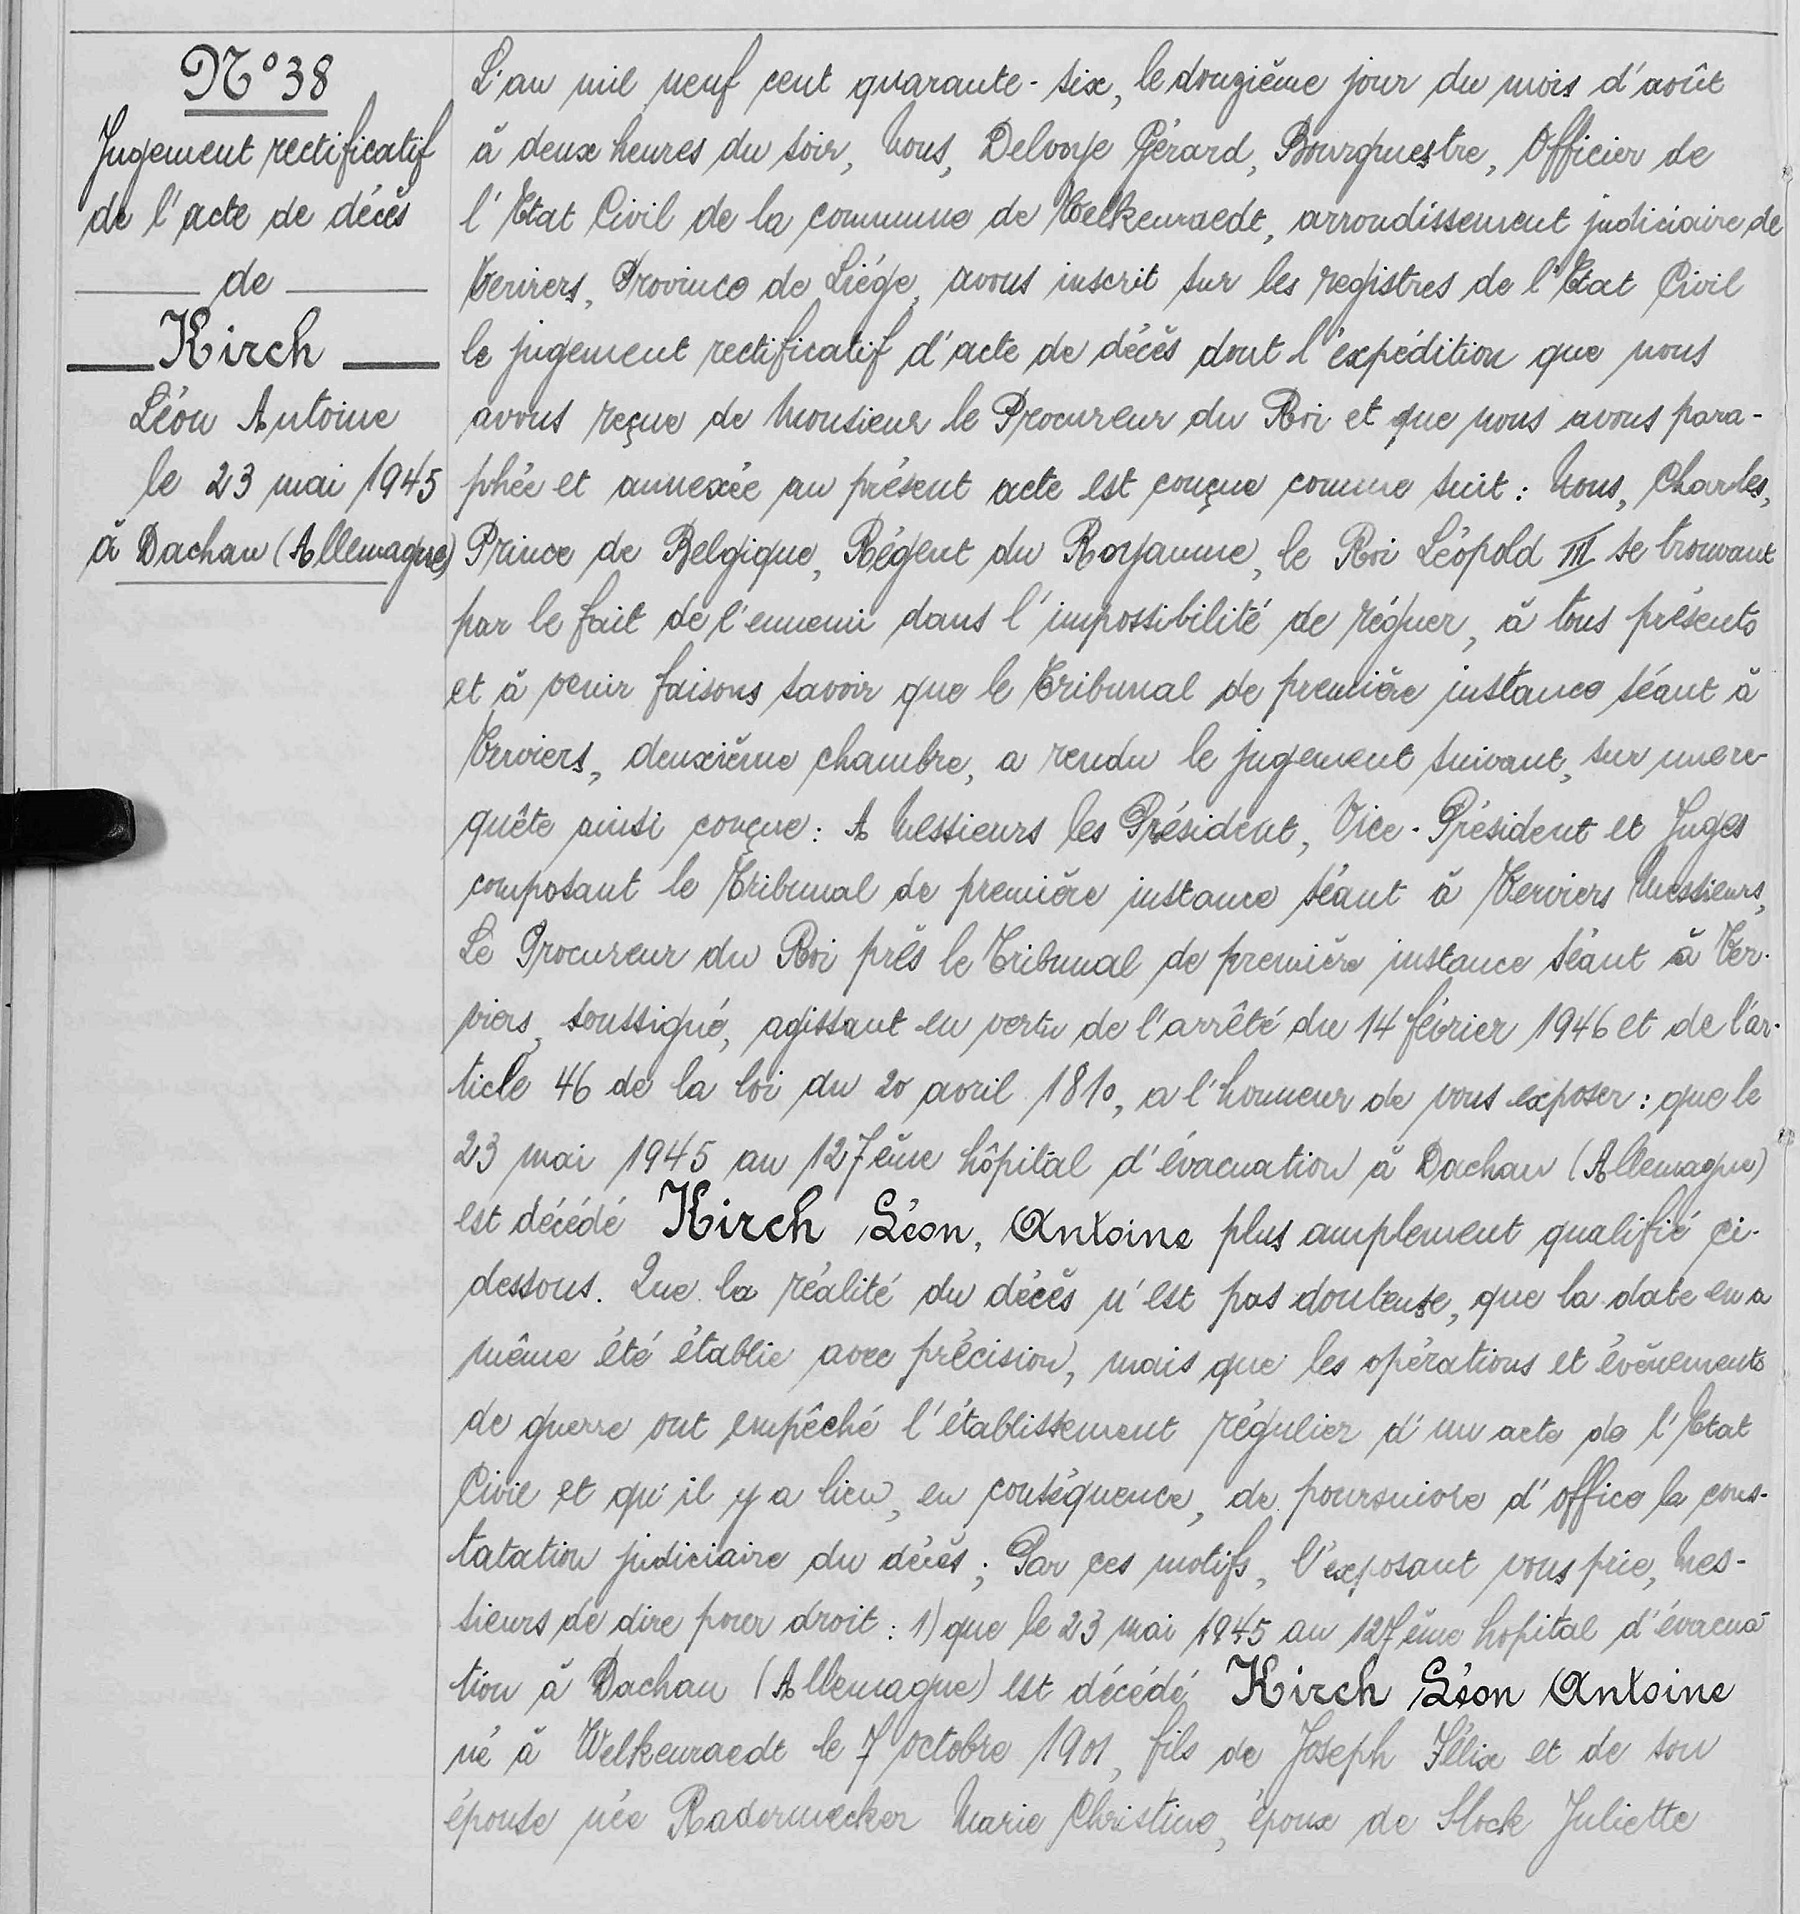 N° 38
Jugement rectificatif
de l'acte de décès
de
Kirch
Léon Antoine
le 23 mai 1945
à Dachau (Allemagne)
L'an mil neuf cent quarante-six, le douzième jour du mois d'août
à deux heures du soir, Nous, Delvoye Gérard, Bourgmestre, Officier de
l'Etat Civil de la commune de Welkenraedt, arrondissement judiciaire de
Verviers, Province de Liége, avons inscrit sur les registres de l'Etat Civil
le jugement rectificatif d'acte de décès dont l'expédition que nous
avons reçue de Monsieur le Procureur du Roi et que nous avons para-
phée et annexée au présent acte est conçue comme suit : Nous, Charles,
Prince de Belgique, Régent du Royaume, le Roi Léopold III se trouvant
par le fait de l'ennemi dans l'impossibilité de régner, à tous présents
et à venir faisons savoir que le Tribunal de première instance séant à
Verviers, deuxième chambre, a rendu le jugement suivant, sur une re-
quête ainsi conçue : A Messieurs les Président, Vice-Président et Juges
composant le Tribunal de première instance séant à Verviers Messieurs,
Le Procureur du Roi près le Tribunal de première instance séant à Ver-
viers, soussigné, agissant en vertu de l'arrêté du 14 février 1946 et de l'ar-
ticle 46 de la loi du 20 avril 1810, a l'honneur de vous exposer : que le
23 mai 1945 au 127ème hôpital d'évacuation à Dachau (Allemagne)
est décédé Kirch Léon, Antoine plus amplement qualifié ci-
dessous. Que la réalité du décès n'est pas douteuse, que la date en a
même été établie avec précision, mais que les opérations et évènements
de guerre ont empêché l'établissement régulier d'un acte de l'Etat
Civil et qu'il y a lieu, en conséquence, de poursuivre d'office la cons-
tatation judiciaire du décès ; Par ces motifs, l'exposant vous prie, Mes-
sieurs de dire pour droit : 1) que le 23 mai 1945 au 127ème hopital d'évacua-
tion à Dachau (Allemagne) est décédé Kirch Léon Antoine
né à Welkenraedt le 7 octobre 1901, fils de Joseph Félix et de son
épouse née Radermecker Marie Christine, époux de Stock Juliette